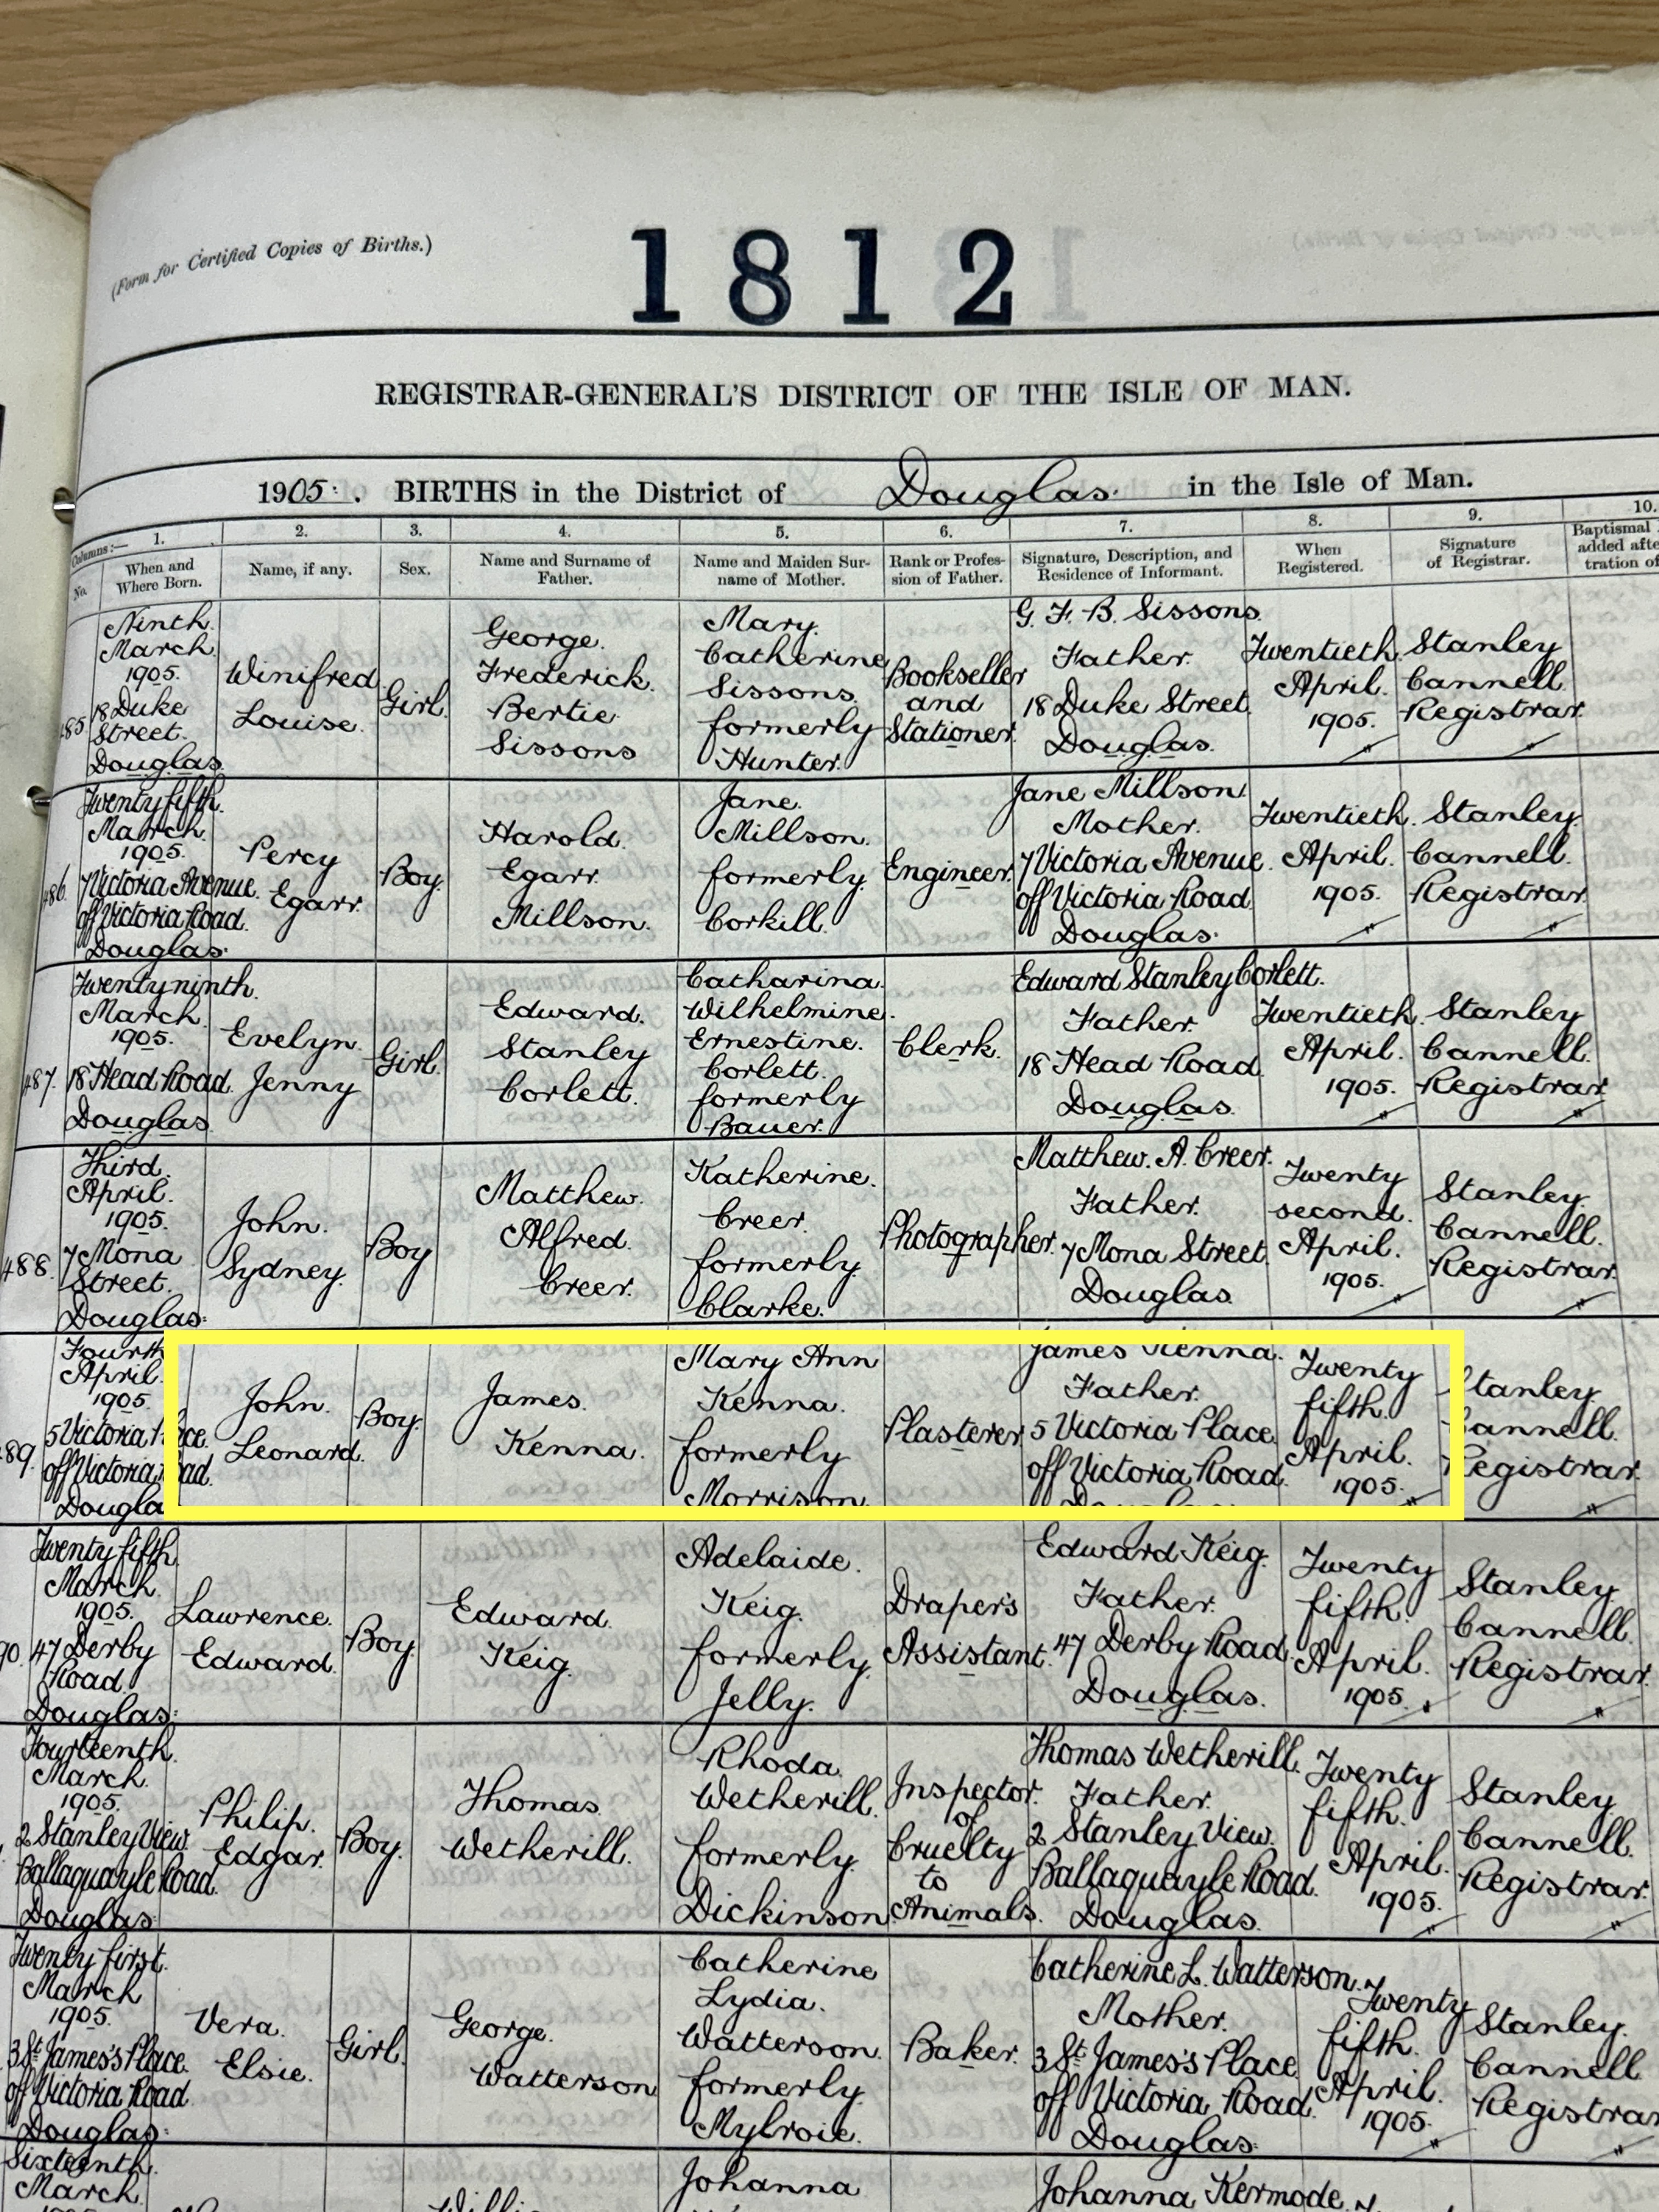 (Form for Certified Copies of Births.)
1812
REGISTRAR-GENERAL'S DISTRICT OF THE ISLE OF MAN.
1905. BIRTHS in the District of Douglas. in the Isle of Man.
Columns:— 1. 2. 3. 4. 5. 6. 7. 8. 9. 10.
No.
When and
Where Born.
Name, if any.
Sex.
Name and Surname of
Father.
Name and Maiden Sur-
name of Mother.
Rank or Profes-
sion of Father.
Signature, Description, and
Residence of Informant.
When
Registered.
Signature
of Registrar.
Baptismal
added afte
tration of
485
Ninth
March
1905.
18 Duke
Street.
Douglas.
Winifred
Louise.
Girl.
George.
Frederick.
Bertie
Sissons
Mary.
Catherine
Sissons.
formerly
Hunter.
Bookseller
and
Stationer.
G. F. B. Sissons.
Father.
18 Duke Street.
Douglas.
Twentieth.
April.
1905.
Stanley
Cannell.
Registrar.
486.
Twenty fifth.
March.
1905.
7 Victoria Avenue.
off Victoria Road.
Douglas.
Percy
Egarr.
Boy.
Harold.
Egarr.
Millson.
Jane.
Millson.
formerly.
Corkill.
Engineer.
Jane Millson.
Mother.
7 Victoria Avenue.
off Victoria Road.
Douglas.
Twentieth.
April.
1905.
Stanley.
Cannell.
Registrar.
487.
Twenty ninth.
March.
1905.
18 Head Road.
Douglas.
Evelyn.
Jenny
Girl.
Edward.
Stanley
Corlett.
Catharina.
Wilhelmine.
Ernestine.
Corlett.
formerly
Bauer.
Clerk.
Edward Stanley Corlett.
Father.
18 Head Road.
Douglas.
Twentieth.
April.
1905.
Stanley
Cannell.
Registrar.
488.
Third.
April.
1905.
7 Mona
Street.
Douglas.
John.
Sydney.
Boy
Matthew.
Alfred.
Creer.
Katherine.
Creer.
formerly.
Clarke.
Photographer.
Matthew. A. Creer.
Father.
7 Mona Street.
Douglas.
Twenty
second.
April.
1905.
Stanley.
Cannell.
Registrar.
89.
Fourth
April.
1905.
5 Victoria Place.
off Victoria Road.
Douglas
John.
Leonard.
Boy.
James.
Kenna.
Mary Ann
Kenna.
formerly
Morrison.
Plasterer.
James Kenna.
Father.
5 Victoria Place.
off Victoria Road.
Douglas
Twenty
fifth.
April.
1905.
Stanley.
Cannell.
Registrar.
90.
Twenty fifth.
March.
1905.
47 Derby
Road.
Douglas.
Lawrence.
Edward.
Boy.
Edward.
Keig.
Adelaide.
Keig.
formerly.
Jelly.
Draper's
Assistant.
Edward Keig.
Father.
47 Derby Road.
Douglas.
Twenty
fifth.
April.
1905.
Stanley
Cannell.
Registrar.
Fourteenth.
March.
1905.
2 Stanley View.
Ballaquayle Road.
Douglas.
Philip.
Edgar.
Boy.
Thomas.
Wetherill.
Rhoda.
Wetherill.
formerly.
Dickinson
Inspector.
of
Cruelty
to
Animals.
Thomas Wetherill.
Father.
2 Stanley View.
Ballaquayle Road.
Douglas.
Twenty
fifth.
April.
1905.
Stanley
Cannell.
Registrar.
Twenty first.
March
1905.
3 St. James's Place.
off Victoria Road
Douglas.
Vera.
Elsie.
Girl.
George.
Watterson
Catherine
Lydia.
Watterson.
formerly.
Mylroie.
Baker.
Catherine L. Watterson.
Mother.
3 St. James's Place.
off Victoria Road.
Douglas.
Twenty
fifth.
April.
1905.
Stanley.
Cannell
Registrar
Sixteenth.
March.
Johanna
Johanna Kermode.